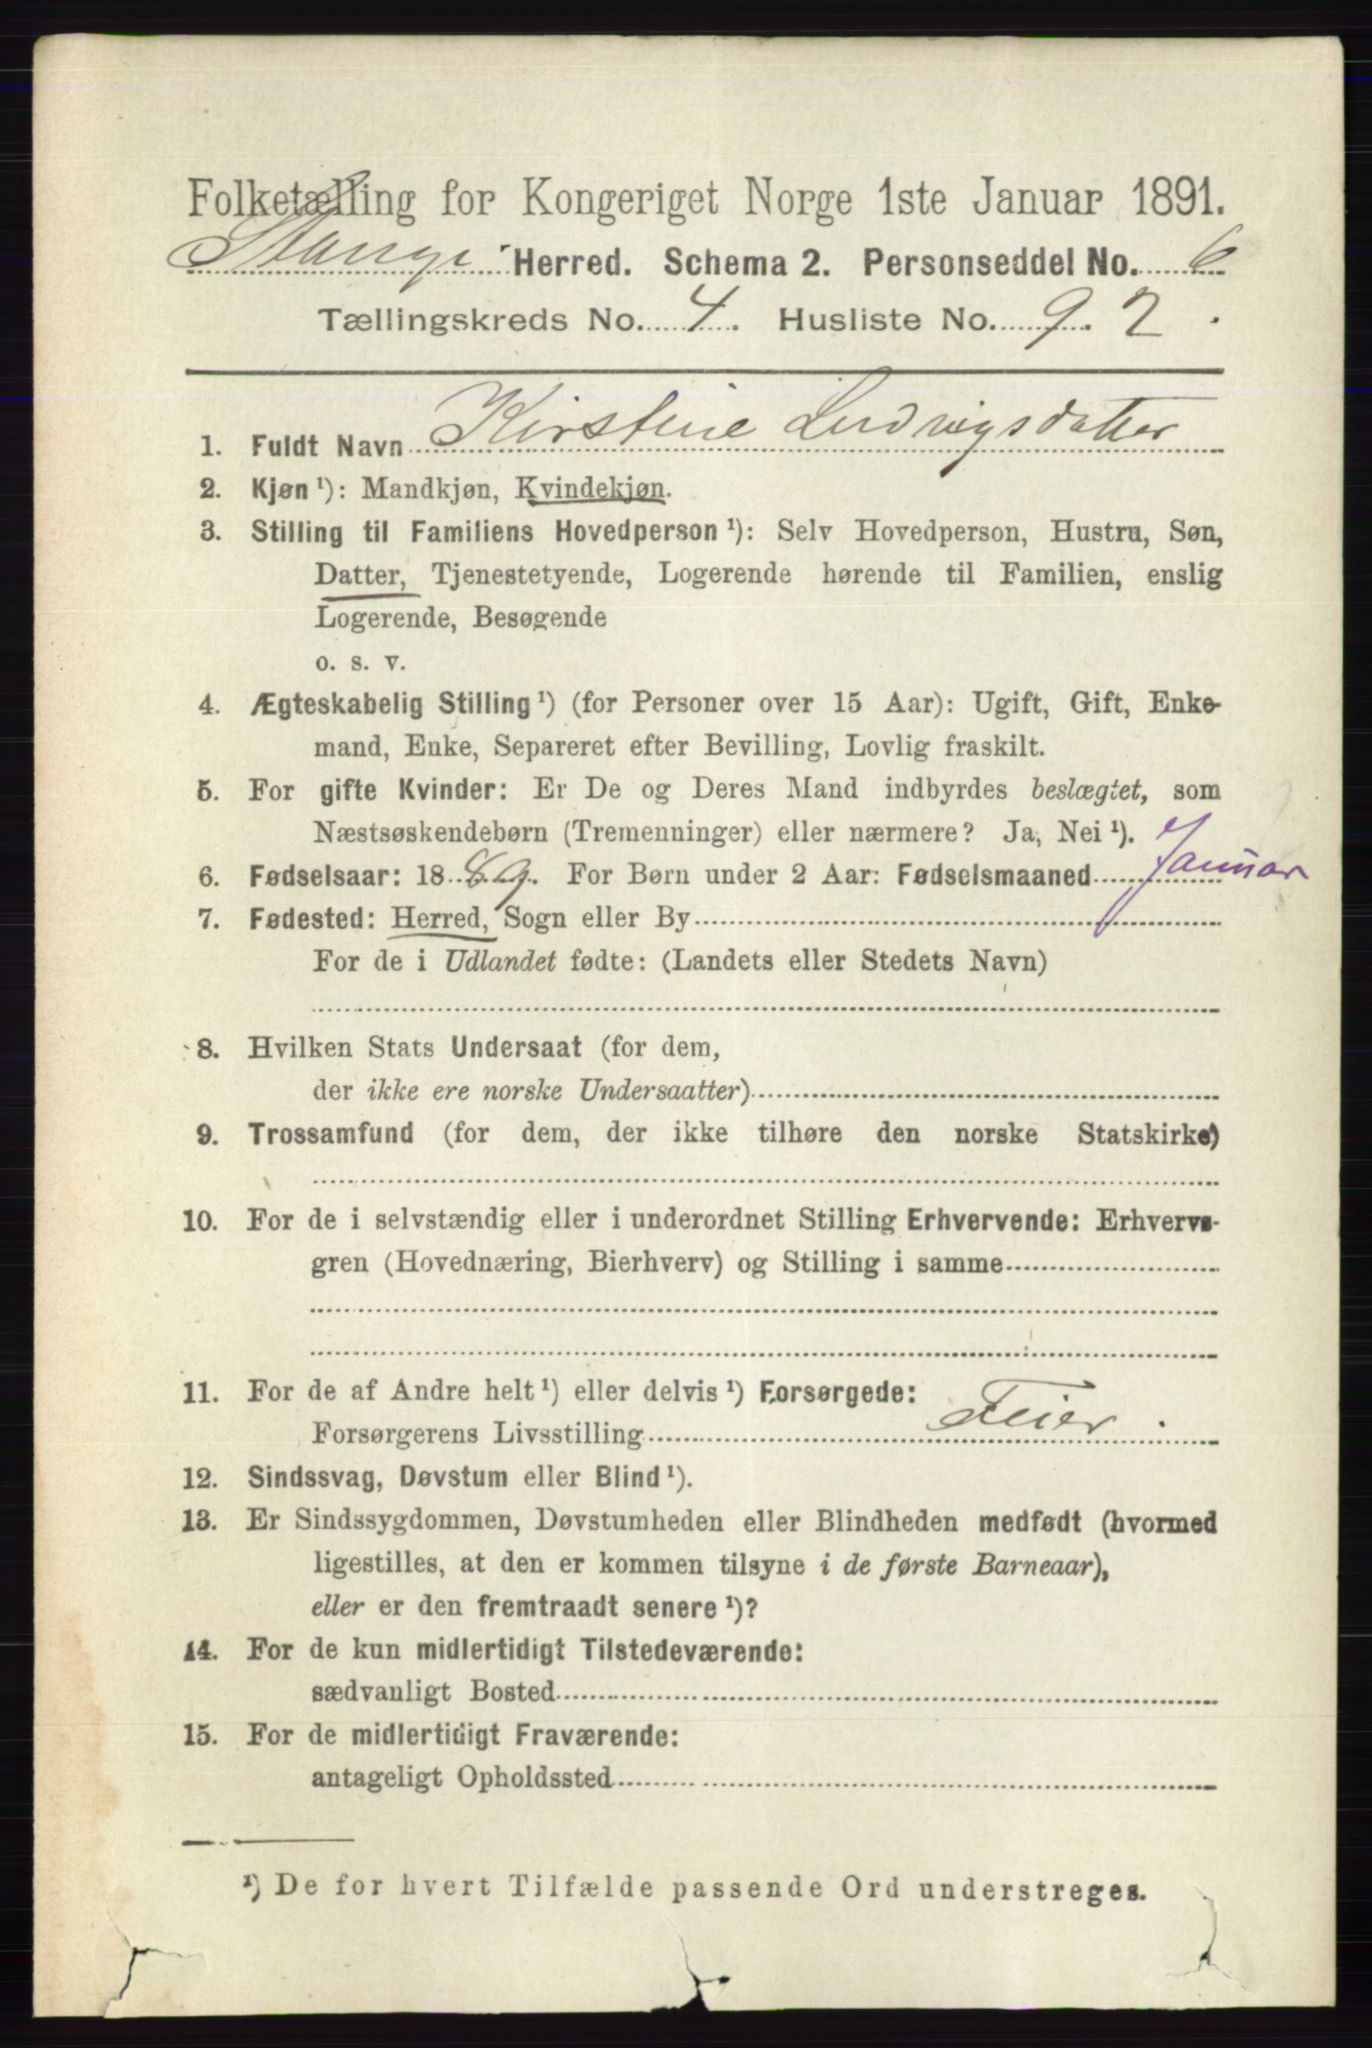 Folketælling for Kongeriget Norge 1ste Januar 1891.
Stange Herred. Schema 2. Personseddel No. 6
Tællingskreds No. 4. Husliste No. 92.
1. Fuldt Navn Kirstine Ludvigsdatter
2. Kjøn ¹): Mandkjøn, Kvindekjøn.
3. Stilling til Familiens Hovedperson ¹): Selv Hovedperson, Hustru, Søn,
Datter, Tjenestetyende, Logerende hørende til Familien, enslig
Logerende, Besøgende
o. s. v.
4. Ægteskabelig Stilling ¹) (for Personer over 15 Aar): Ugift, Gift, Enke-
mand, Enke, Separeret efter Bevilling, Lovlig fraskilt.
5. For gifte Kvinder: Er De og Deres Mand indbyrdes beslægtet, som
Næstsøskendebørn (Tremenninger) eller nærmere? Ja, Nei ¹).
6. Fødselsaar: 1889. For Børn under 2 Aar: Fødselsmaaned Januar
7. Fødested: Herred, Sogn eller By
For de i Udlandet fødte: (Landets eller Stedets Navn)
8. Hvilken Stats Undersaat (for dem,
der ikke ere norske Undersaatter)
9. Trossamfund (for dem, der ikke tilhøre den norske Statskirke)
10. For de i selvstændig eller i underordnet Stilling Erhvervende: Erhvervs-
gren (Hovednæring, Bierhverv) og Stilling i samme
11. For de af Andre helt ¹) eller delvis ¹) Forsørgede:
Forsørgerens Livsstilling Feier.
12. Sindssvag, Døvstum eller Blind ¹).
13. Er Sindssygdommen, Døvstumheden eller Blindheden medfødt (hvormed
ligestilles, at den er kommen tilsyne i de første Barneaar),
eller er den fremtraadt senere ¹)?
14. For de kun midlertidigt Tilstedeværende:
sædvanligt Bosted
15. For de midlertidigt Fraværende:
antageligt Opholdssted
¹) De for hvert Tilfælde passende Ord understreges.